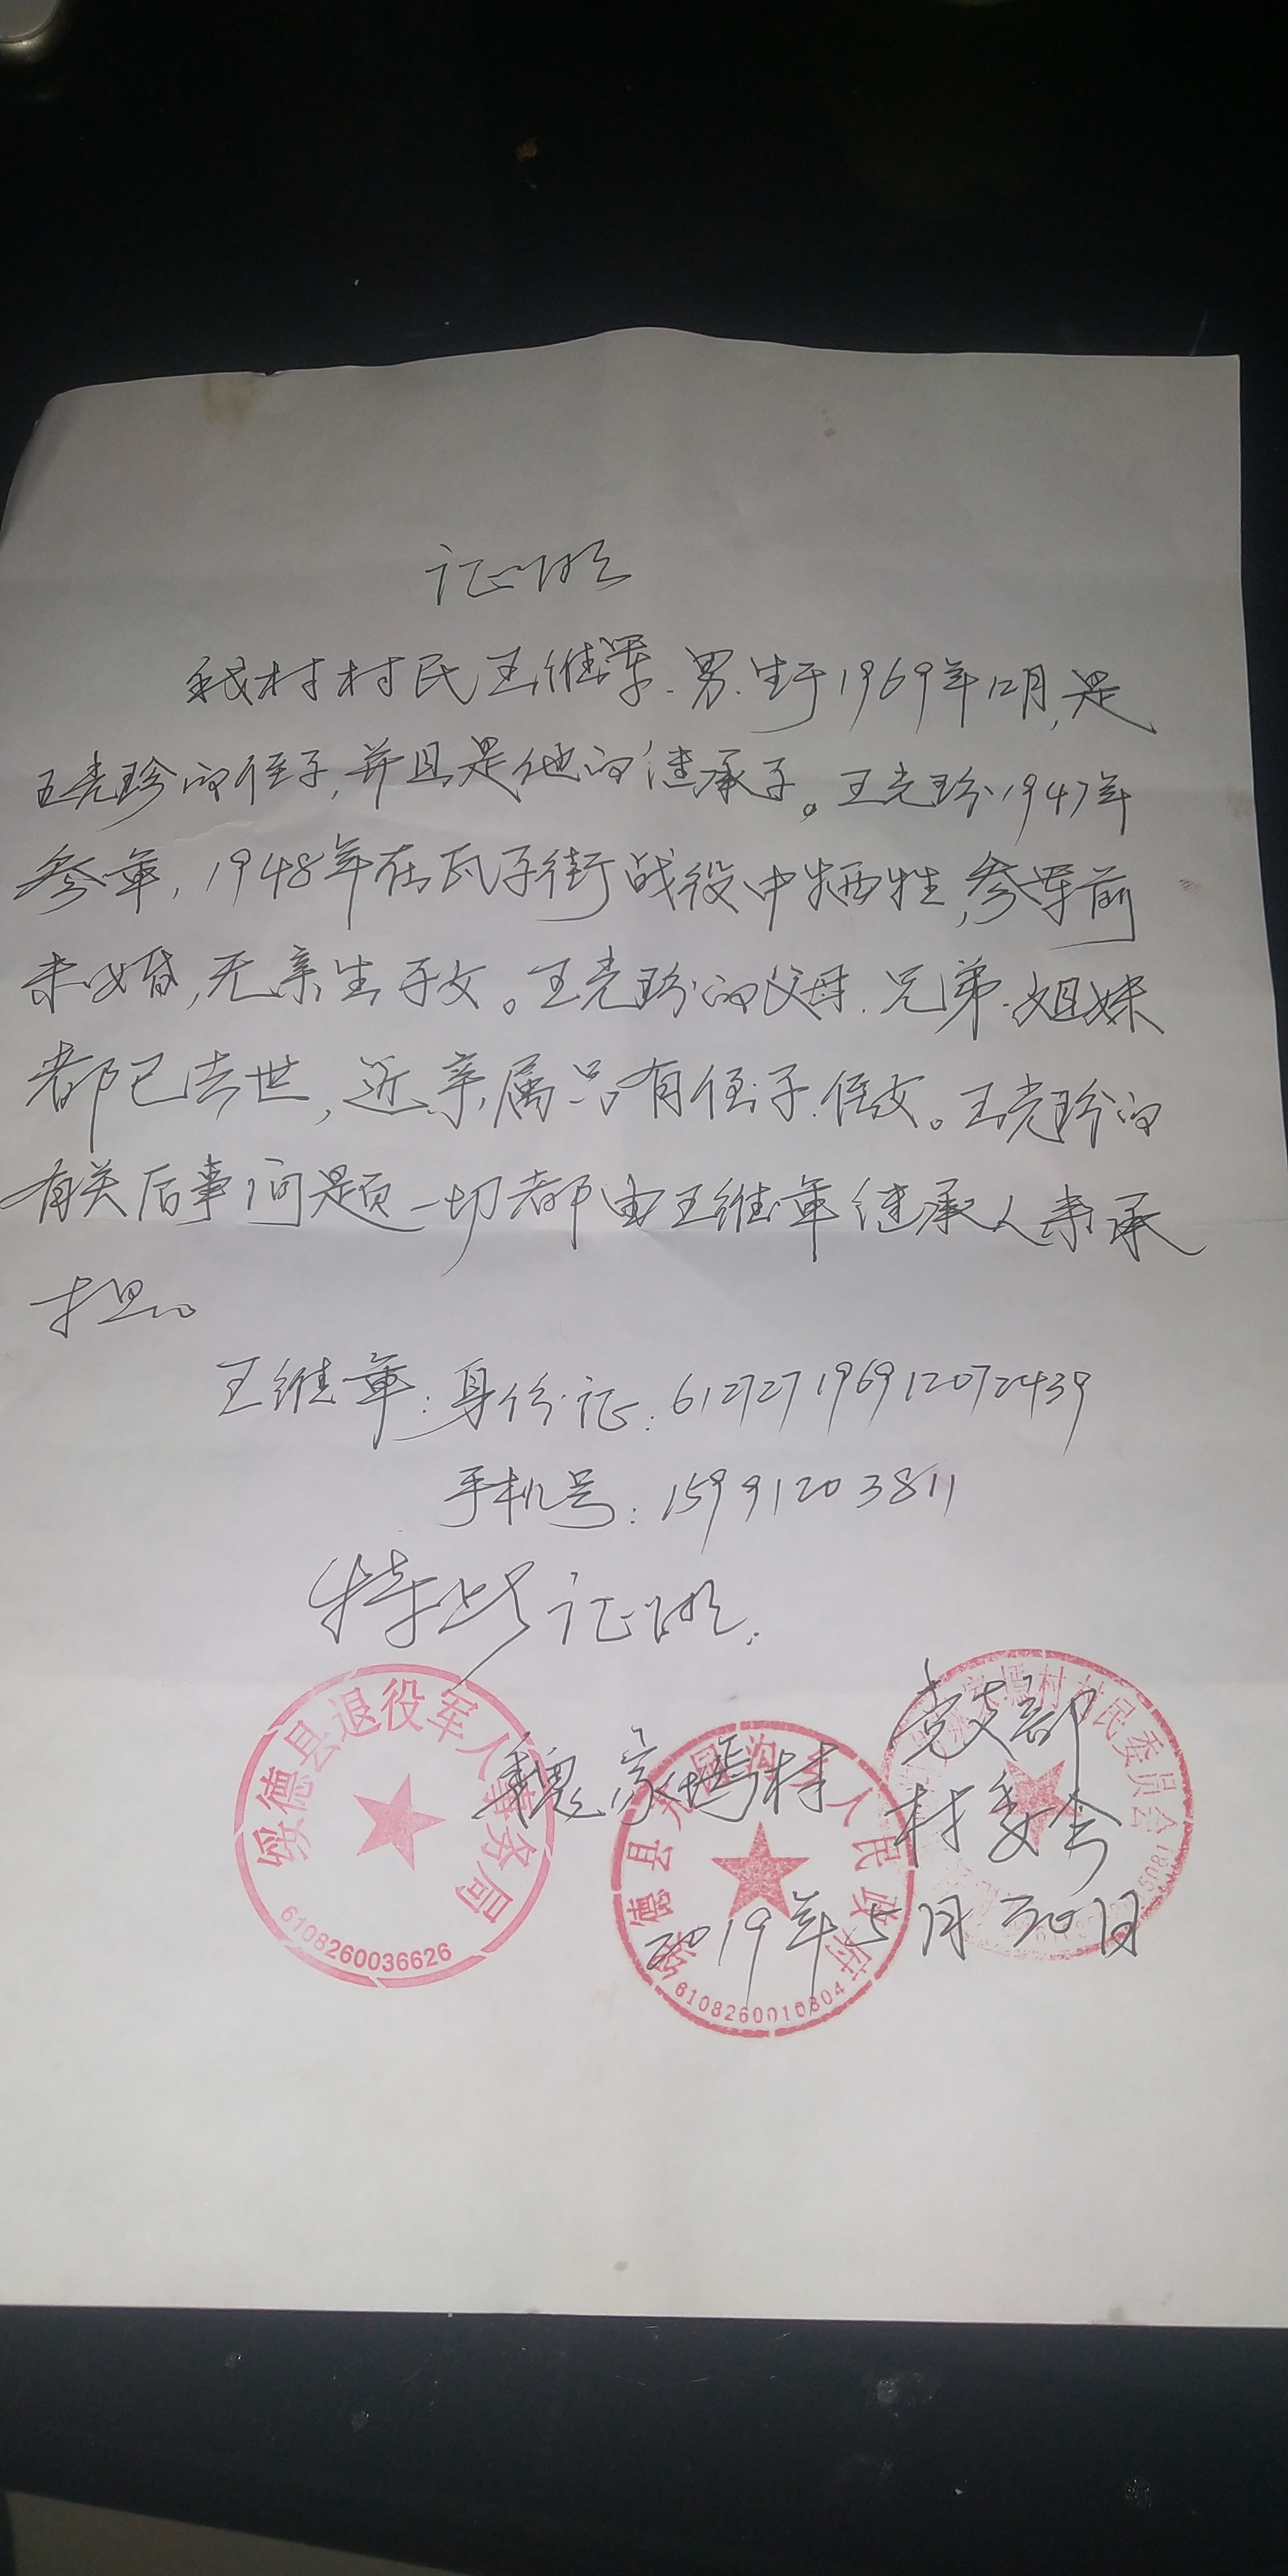 证明
我村村民王维军.男.生于1969年12月,是
王克珍的侄子,并且是他的继承子。王克珍1947年
参军,1948年在瓦子街战役中牺牲,参军前
未婚,无亲生子女。王克珍的父母.兄弟.姐妹
都已去世,近亲属只有侄子.侄女。王克珍的
有关后事问题一切都由王维军继承人来承
担。
王维军:身份证:612727196912072439
手机号:15991203811
特此证明.
魏家墕村 党支部
村委会
2019年5月30日
绥德县退役军人事务局
6108260036626
绥德县 沟 人民政府
6108260010804
墕村村民委员会